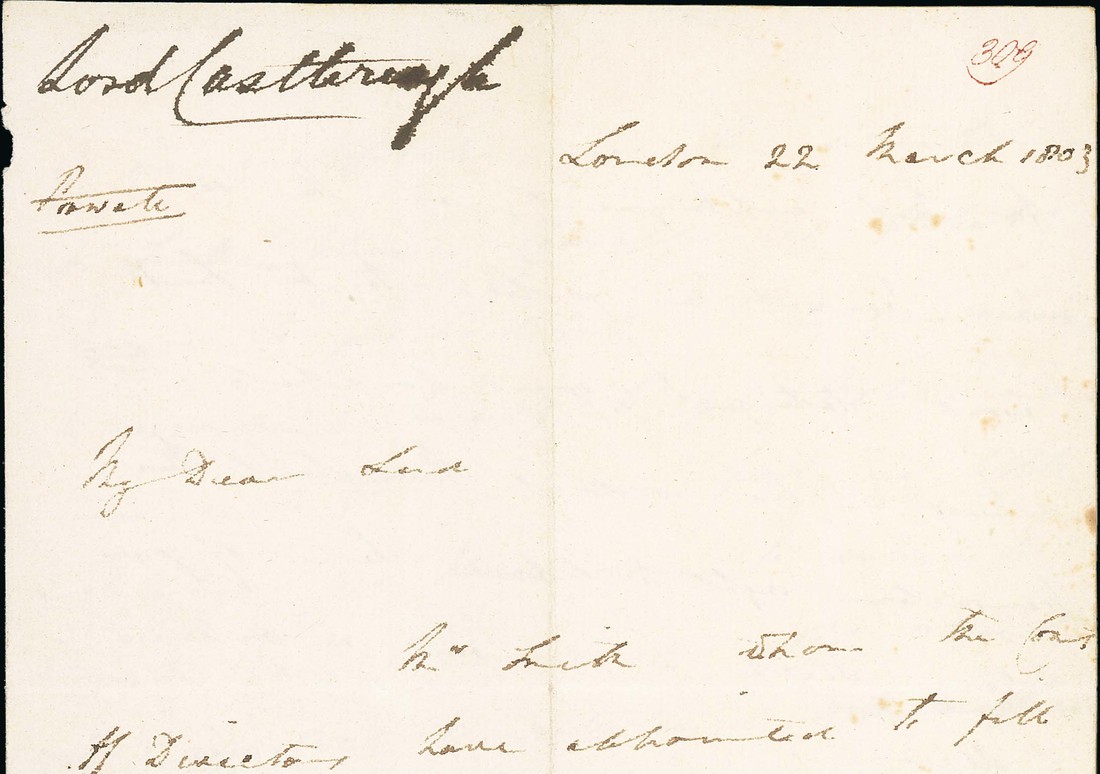 Lord Castlereagh
309
London 22 March 1803
Private
My Dear Lord
Mr Smith whom the Court
of Directors have appointed to fill